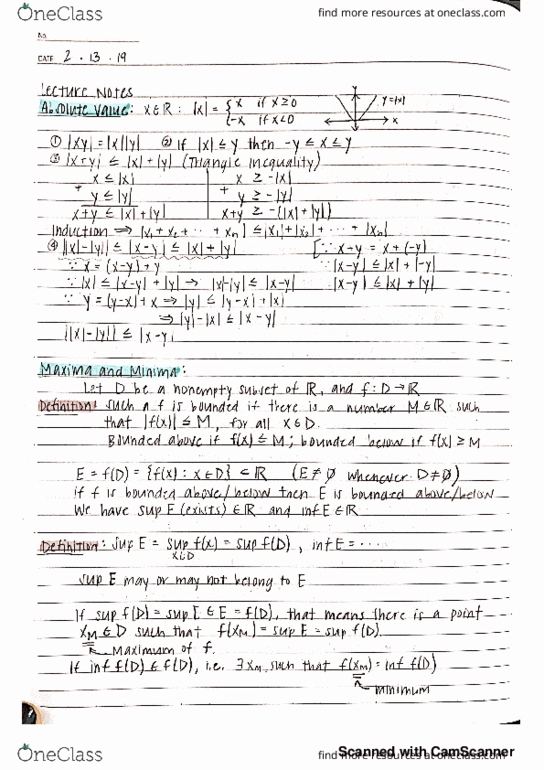 OneClass
find more resources at oneclass.com
No.
DATE 2 · 13 · 19
Lecture Notes
Absolute Value: x∈ℝ : |x| = { x if x≥0
{ -x if x<0
y=|x|
y
x
① |xy| = |x||y| ② if |x| ≤ y then -y ≤ x ≤ y
③ |x+y| ≤ |x| + |y| (Triangle Inequality)
x ≤ |x| x ≥ -|x|
+ y ≤ |y| + y ≥ -|y|
x+y ≤ |x| + |y| x+y ≥ -(|x| + |y|)
Induction ⇒ |x₁ + x₂ + ··· + xₙ| ≤ |x₁| + |x₂| + ··· + |xₙ|
④ ||x|-|y|| ≤ |x-y| ≤ |x| + |y| [∵ x-y = x + (-y)
∵ x = (x-y) + y ∵ |x-y| ≤ |x| + |-y|
∵ |x| ≤ |x-y| + |y| ⇒ |x|-|y| ≤ |x-y| |x-y| ≤ |x| + |y|
∵ y = (y-x) + x ⇒ |y| ≤ |y-x| + |x|
⇒ |y|-|x| ≤ |x-y|
||x|-|y|| ≤ |x-y|
Maxima and Minima:
Let D be a nonempty subset of ℝ, and f: D→ℝ
Definition: Such a f is bounded if there is a number M∈ℝ such
that |f(x)| ≤ M, for all x∈D.
Bounded above if f(x) ≤ M ; bounded below if f(x) ≥ M
E = f(D) = {f(x) : x∈D} ⊂ ℝ (E ≠ ∅ whenever D ≠ ∅)
If f is bounded above/below then E is bounded above/below
We have sup E (exists) ∈ ℝ and inf E ∈ ℝ
Definition: Sup E = sup f(x) = sup f(D) , inf E = ·····
x∈D
Sup E may or may not belong to E
If sup f(D) = sup E ∈ E = f(D), that means there is a point
x_M ∈ D such that f(x_M) = sup E = sup f(D).
Maximum of f.
If inf f(D) ∈ f(D), i.e. ∃ x_m such that f(x_m) = inf f(D)
minimum
OneClass
find more resources at oneclass.com
Scanned with CamScanner